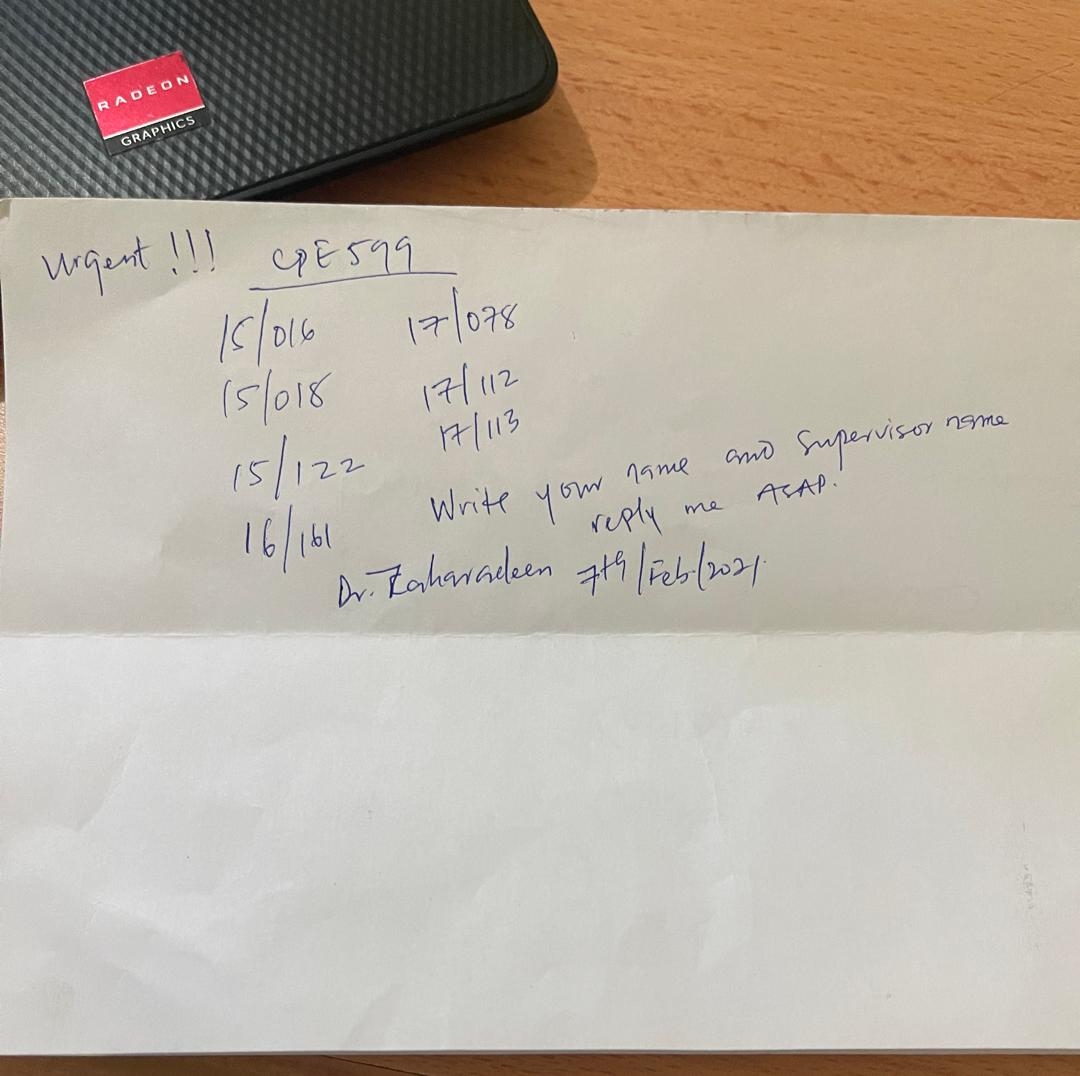 RADEON
GRAPHICS
Urgent !!! CPE599
15/016 17/078
15/018 17/112
17/113
15/122
16/161
Write your name and Supervisor name
reply me ASAP.
Dr. Zaharadeen 7th/Feb/2021.